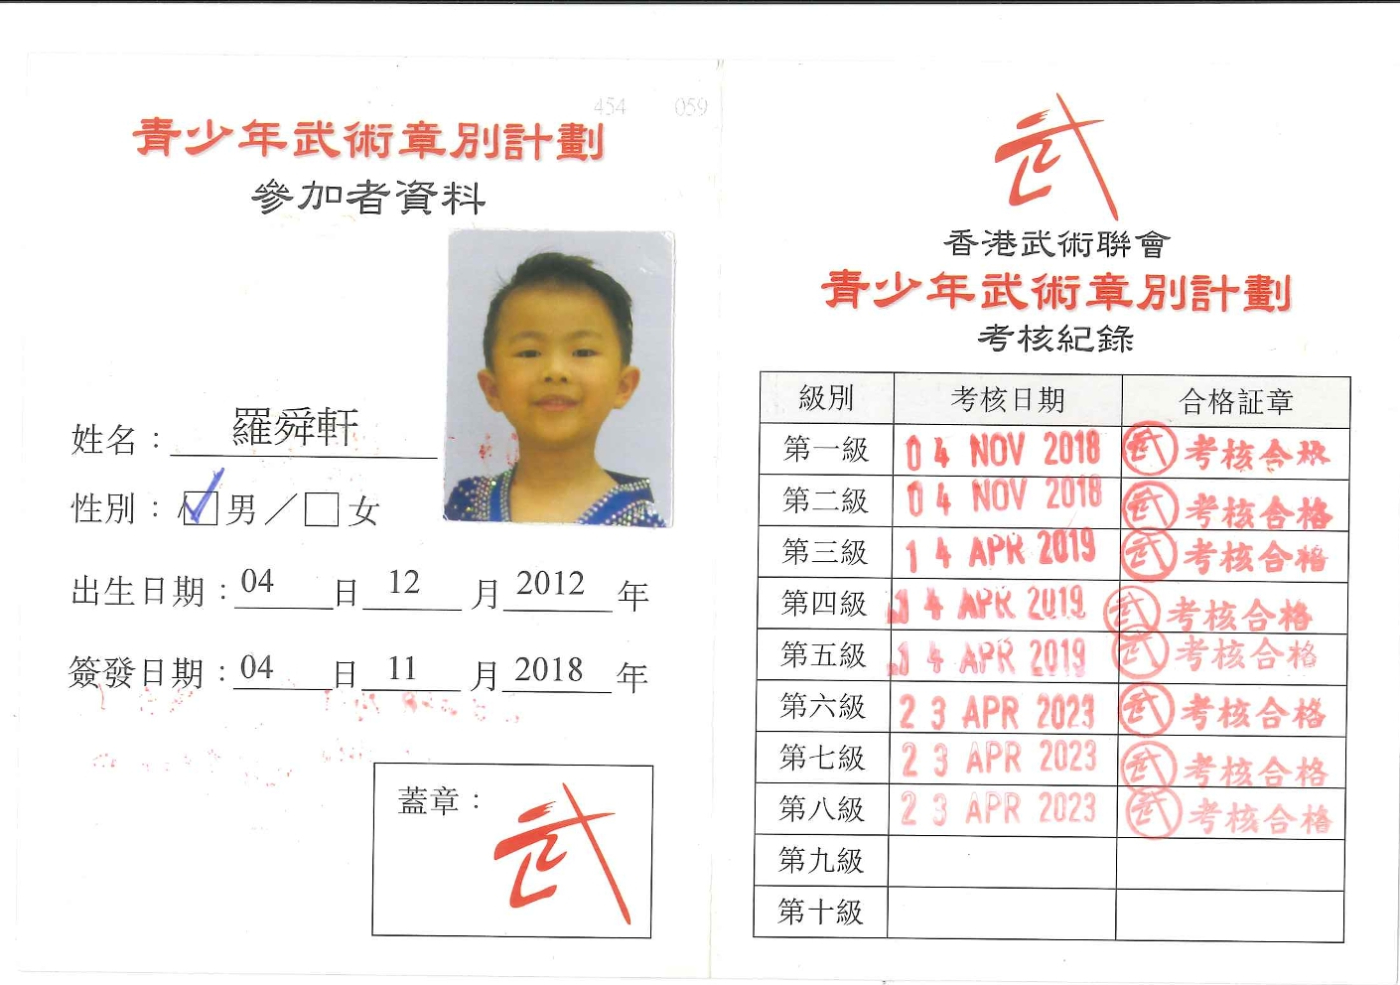 454 059
青少年武術章別計劃
參加者資料
姓名：羅舜軒
性別：☑男／□女
出生日期：04日12月2012年
簽發日期：04日11月2018年
蓋章：
武
武
香港武術聯會
青少年武術章別計劃
考核紀錄
級別 考核日期 合格証章
第一級 04 NOV 2018 武 考核合格
第二級 04 NOV 2018 武 考核合格
第三級 14 APR 2019 武 考核合格
第四級 14 APR 2019 武 考核合格
第五級 14 APR 2019 武 考核合格
第六級 23 APR 2023 武 考核合格
第七級 23 APR 2023 武 考核合格
第八級 23 APR 2023 武 考核合格
第九級
第十級